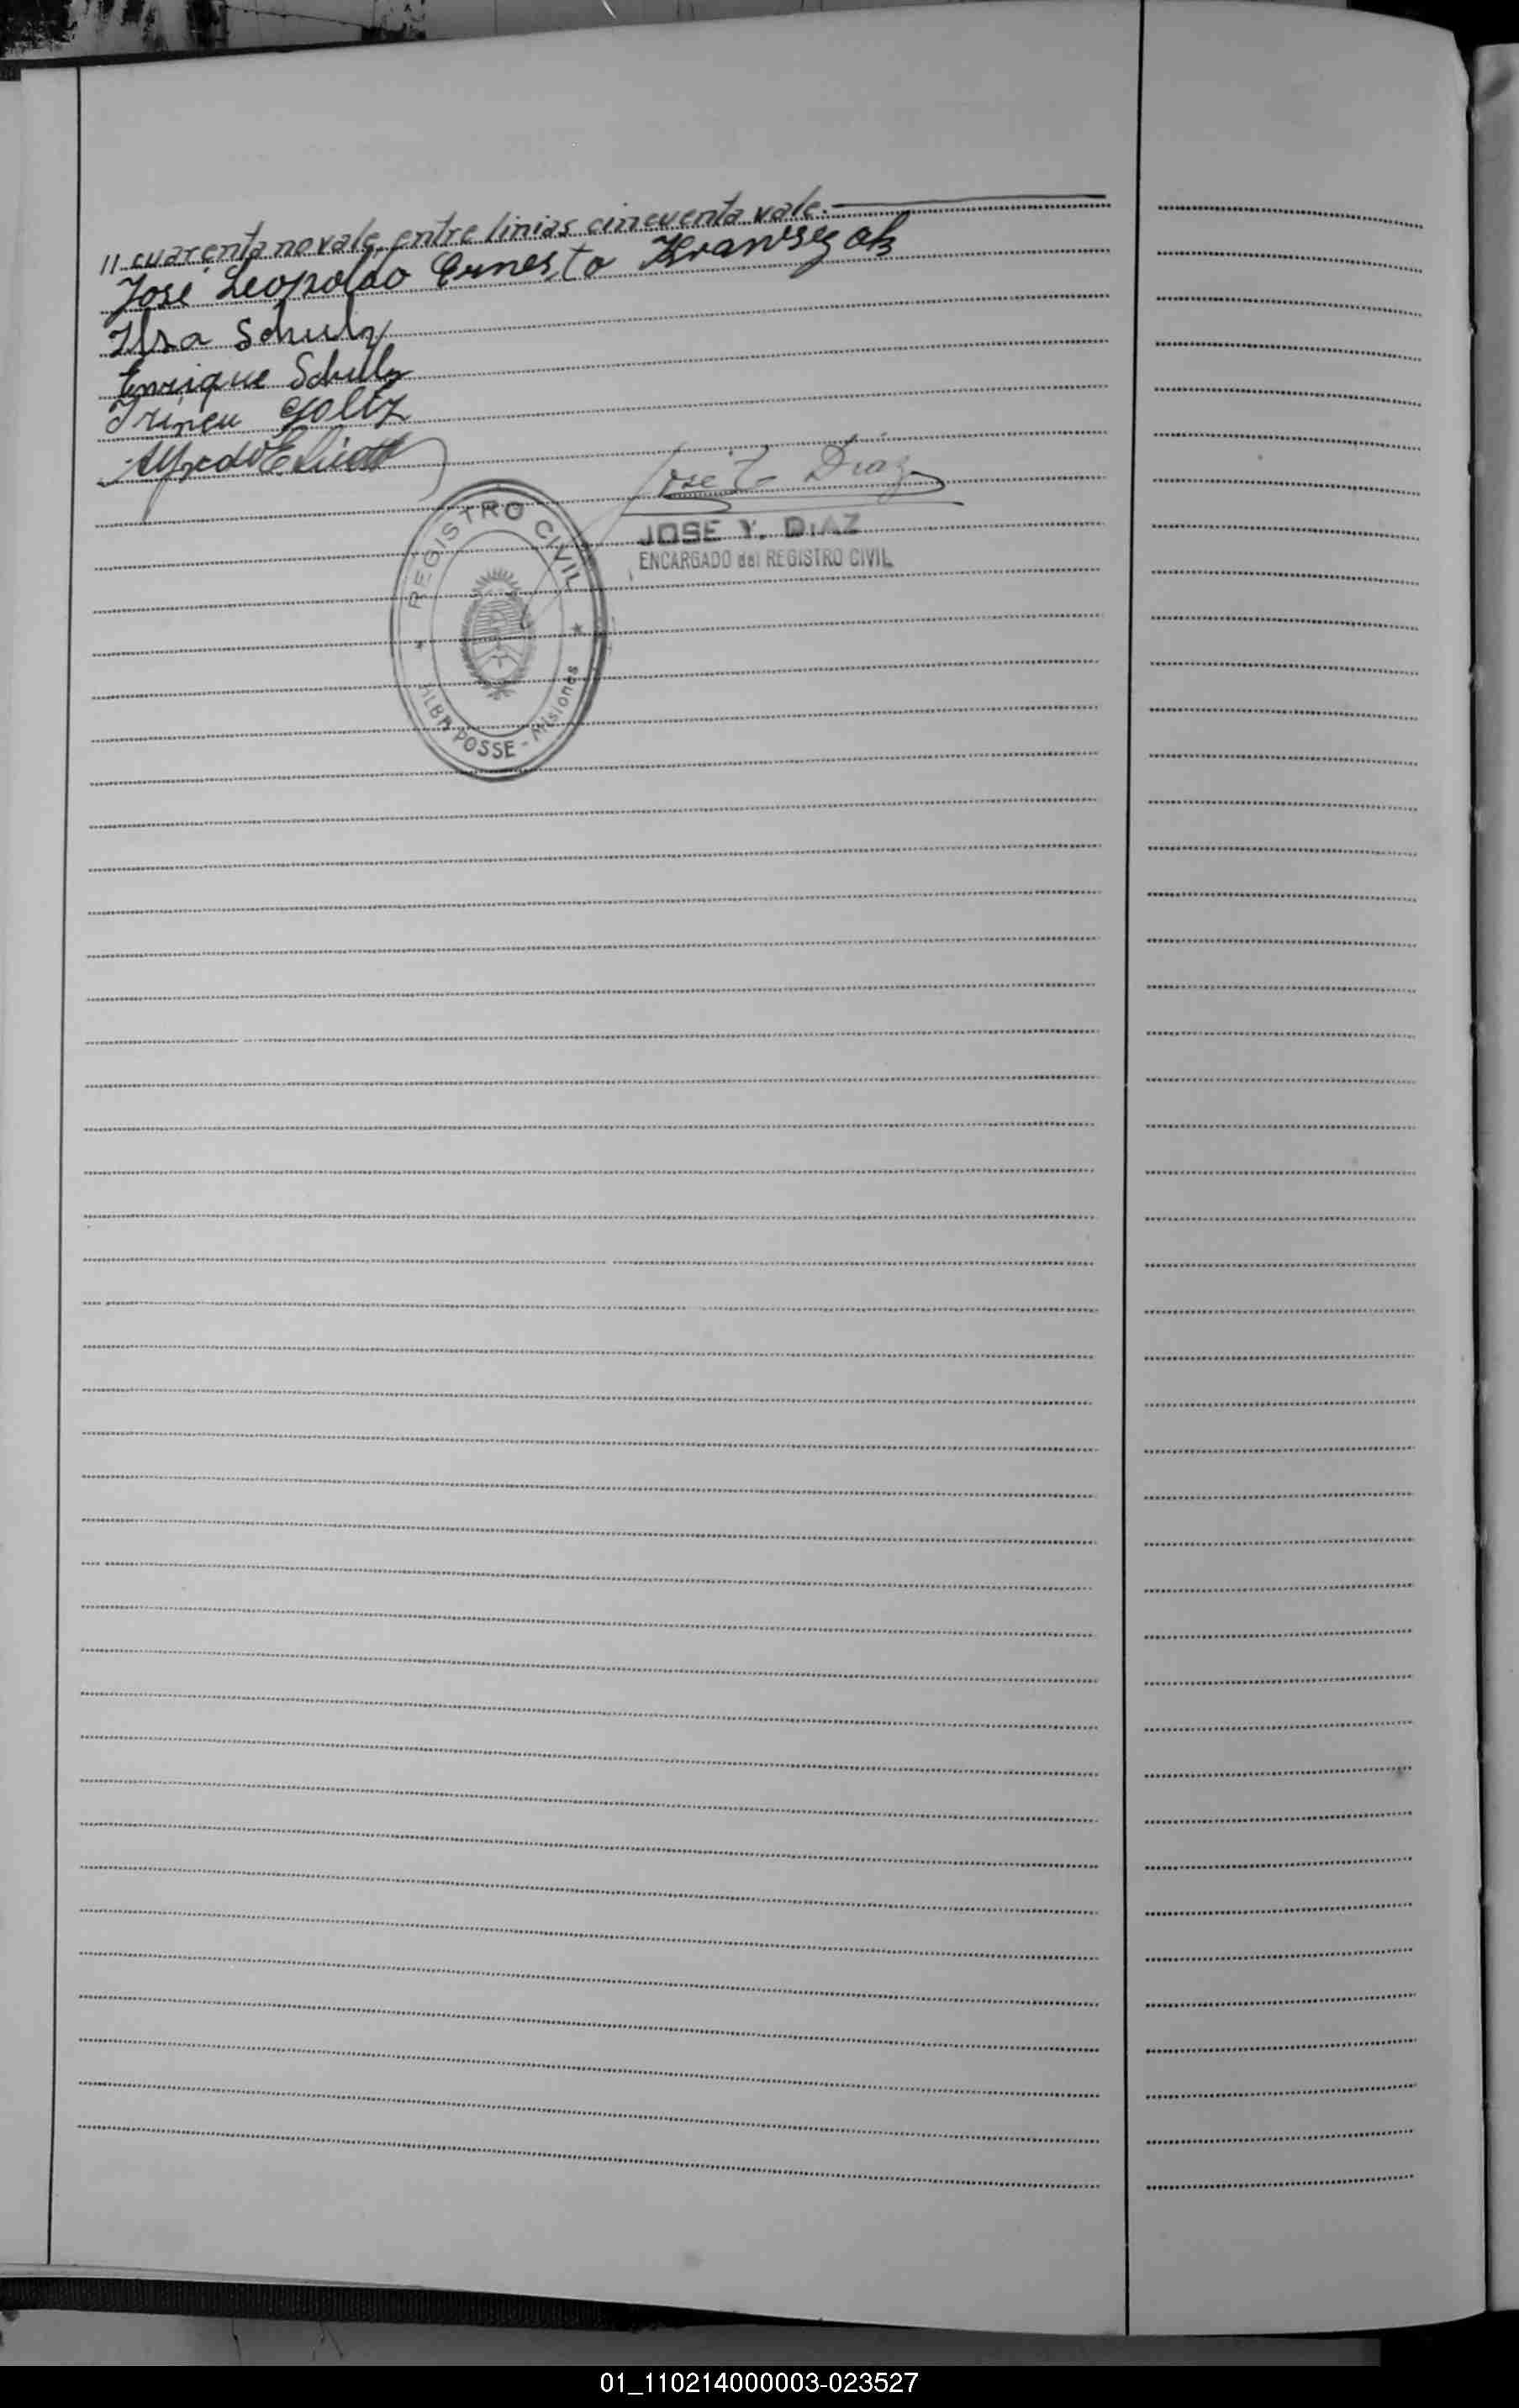 11 cuarenta no vale, entre linias cincuenta vale.
José Leopoldo Ernesto Krawszok
Ilsa Schulz
Enrique Schulz
Irineu Goltz
Alfredo E.
José Y Diaz
JOSE Y. DIAZ
ENCARGADO del REGISTRO CIVIL
REGISTRO CIVIL
ALBA POSSE - Misiones
01_110214000003-023527